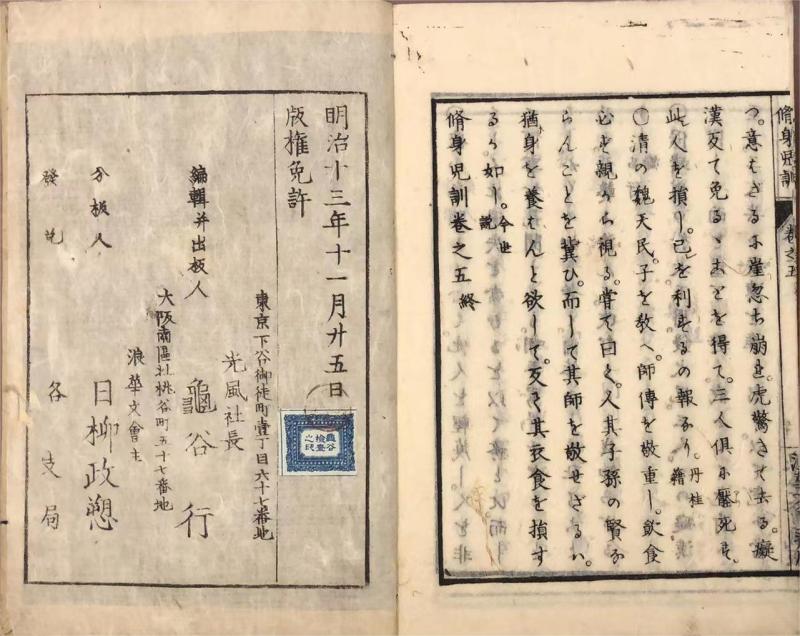 つ。意はざるに崖忽ち崩き。虎驚きて去る。癡
漢反て免るゝことを得て。三人俱に壓死す。
此人を損し。己を利するの報なり。丹桂籍
〇清の魏天民。子を教へ。師傅を敬重し。飲食
必ず親から視る。嘗て曰く。人其子孫の賢な
らんことを冀ひ。而して其師を敬せざるハ。
猶身を養はんと欲して。反て其衣食を損す
るか如し。今世説
脩身児訓巻之五 終
脩身児訓
巻之五
明治十三年十一月廿五日
版権免許
東京下谷御徒町壹丁目六十七番地
光風社長
編輯并出板人
龜谷行
大阪南區北桃谷町五十七番地
浪華文會主
分板人
日柳政愬
發兌
各支局
龜谷
檢查
之証